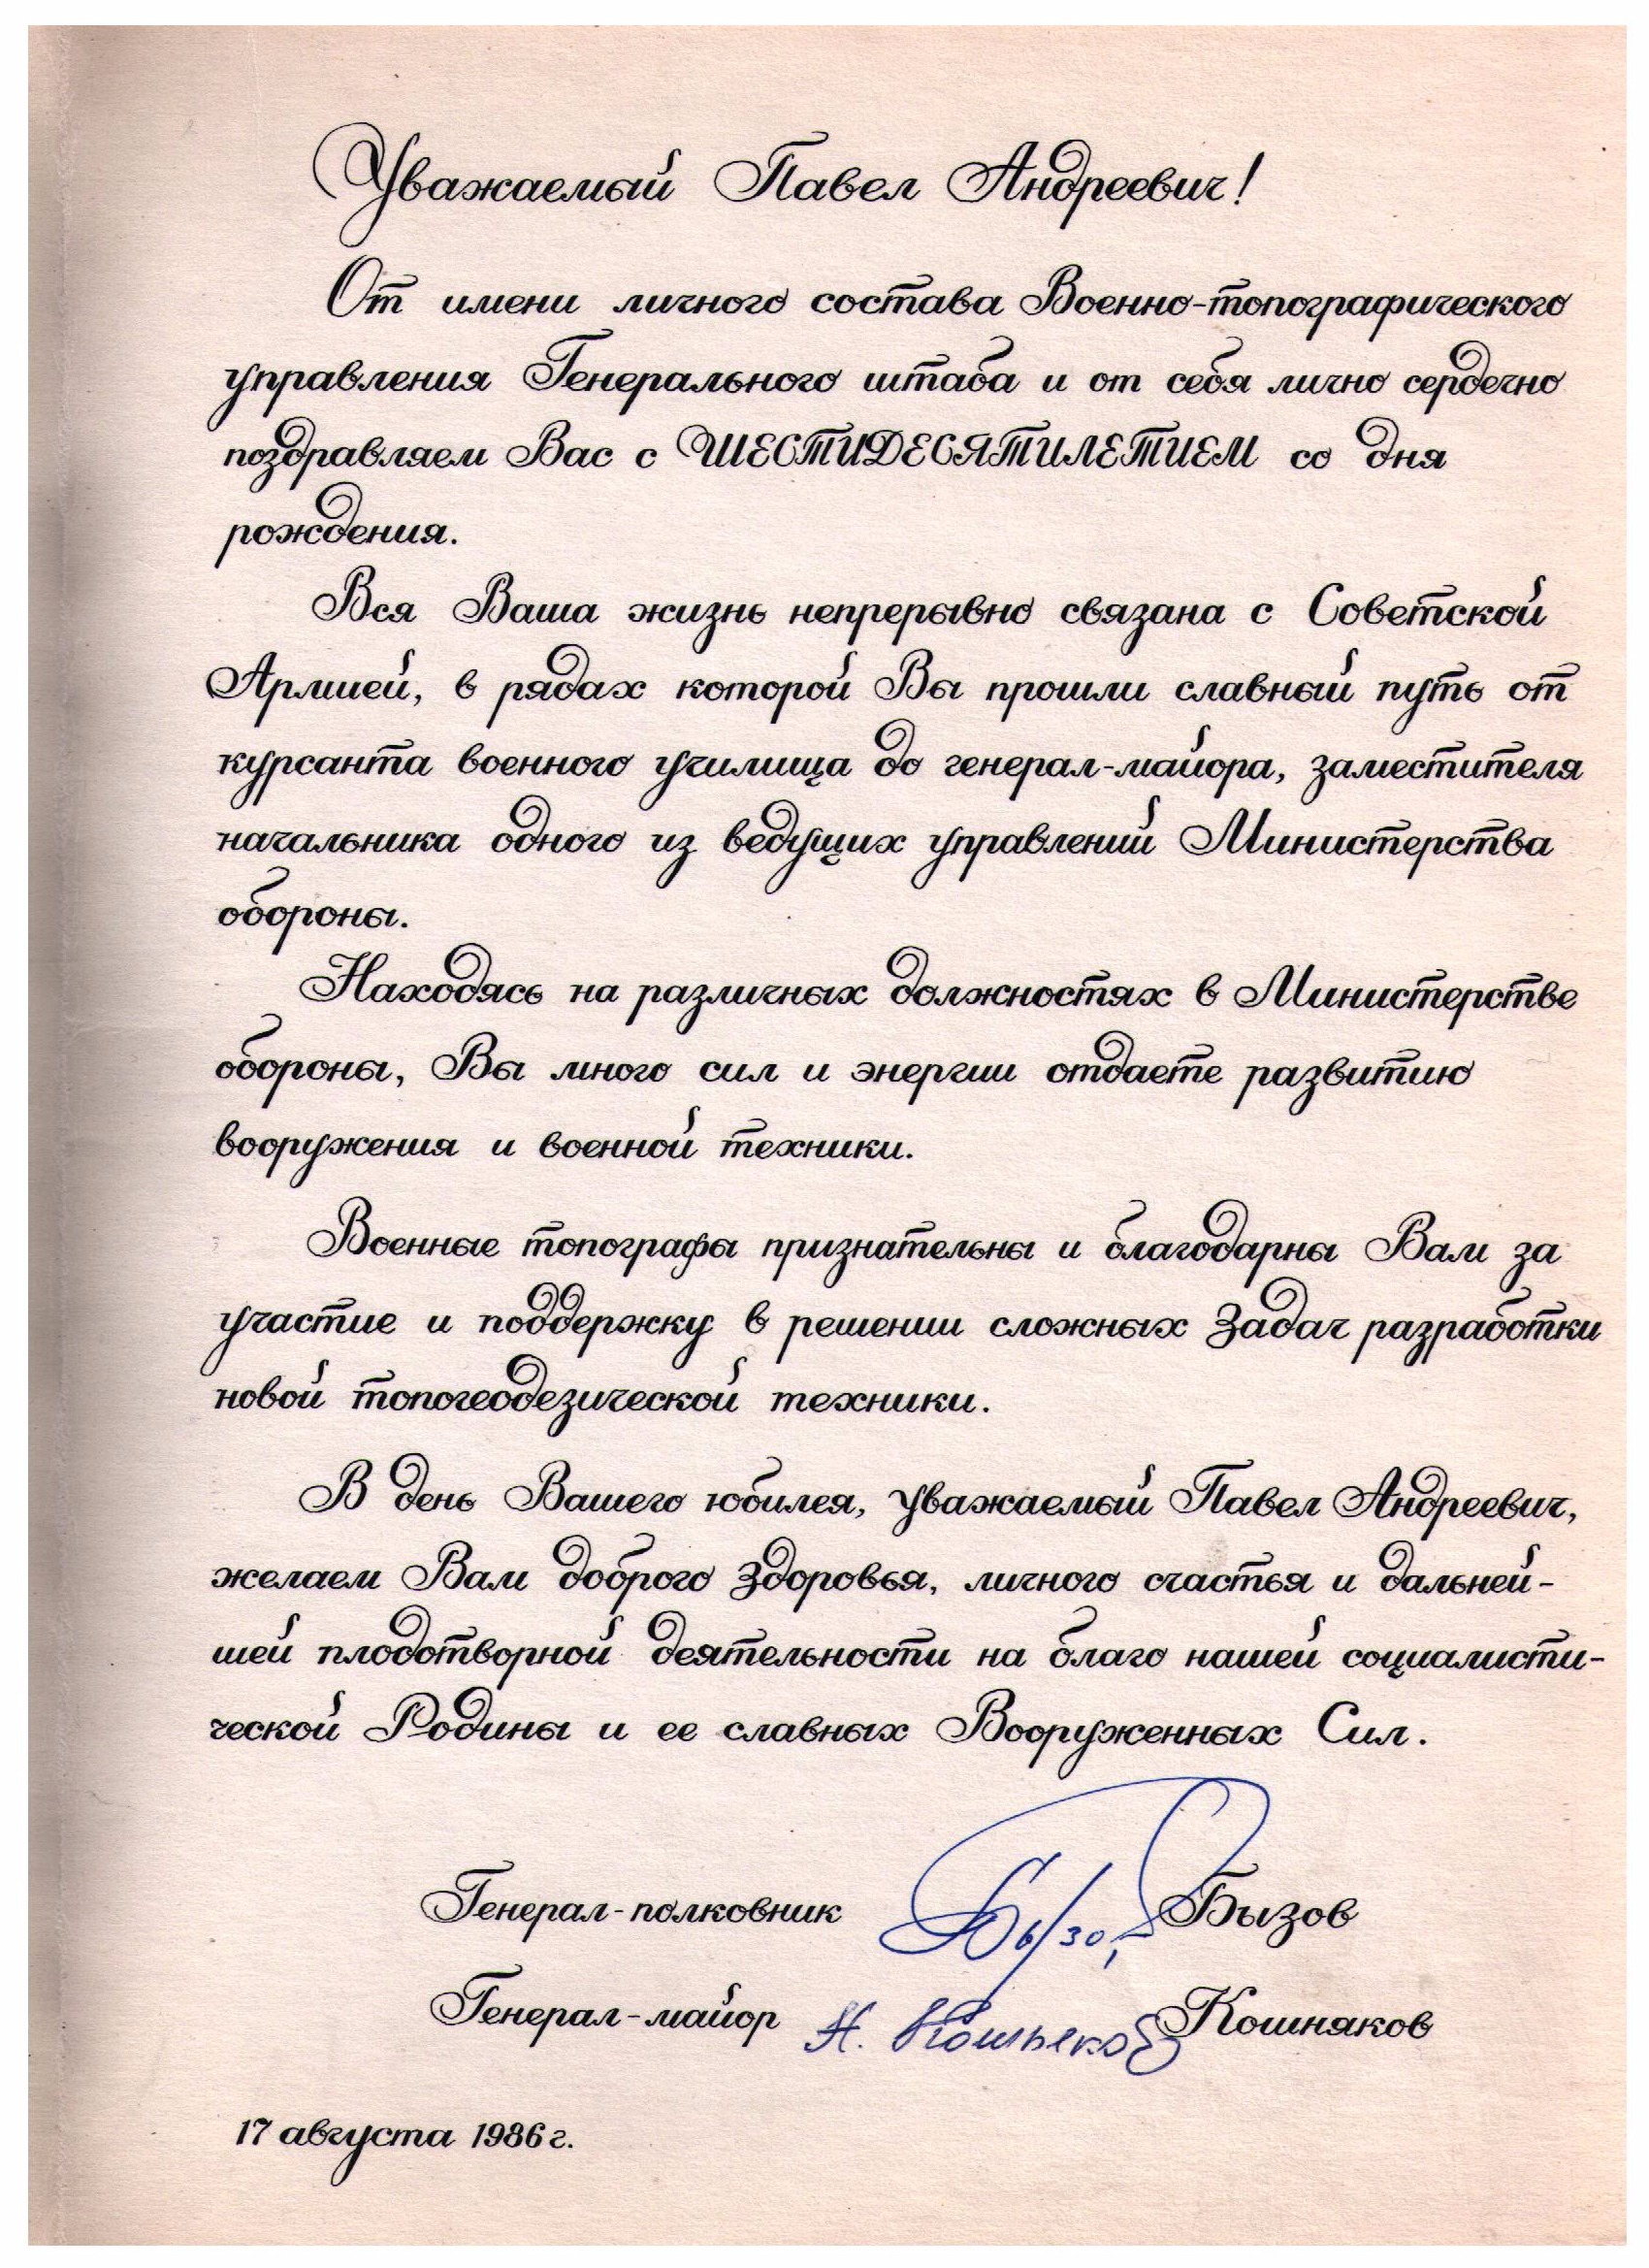 Уважаемый Павел Андреевич!
От имени личного состава Военно-топографического
управления Генерального штаба и от себя лично сердечно
поздравляем Вас с ШЕСТИДЕСЯТИЛЕТИЕМ со дня
рождения.
Вся Ваша жизнь непрерывно связана с Советской
Армией, в рядах которой Вы прошли славный путь от
курсанта военного училища до генерал-майора, заместителя
начальника одного из ведущих управлений Министерства
обороны.
Находясь на различных должностях в Министерстве
обороны, Вы много сил и энергии отдаете развитию
вооружения и военной техники.
Военные топографы признательны и благодарны Вам за
участие и поддержку в решении сложных задач разработки
новой топогеодезической техники.
В день Вашего юбилея, уважаемый Павел Андреевич,
желаем Вам доброго здоровья, личного счастья и дальней-
шей плодотворной деятельности на благо нашей социалисти-
ческой Родины и ее славных Вооруженных Сил.
Генерал-полковник Бызов Бызов
Генерал-майор Н. Кошняков Кошняков
17 августа 1986 г.